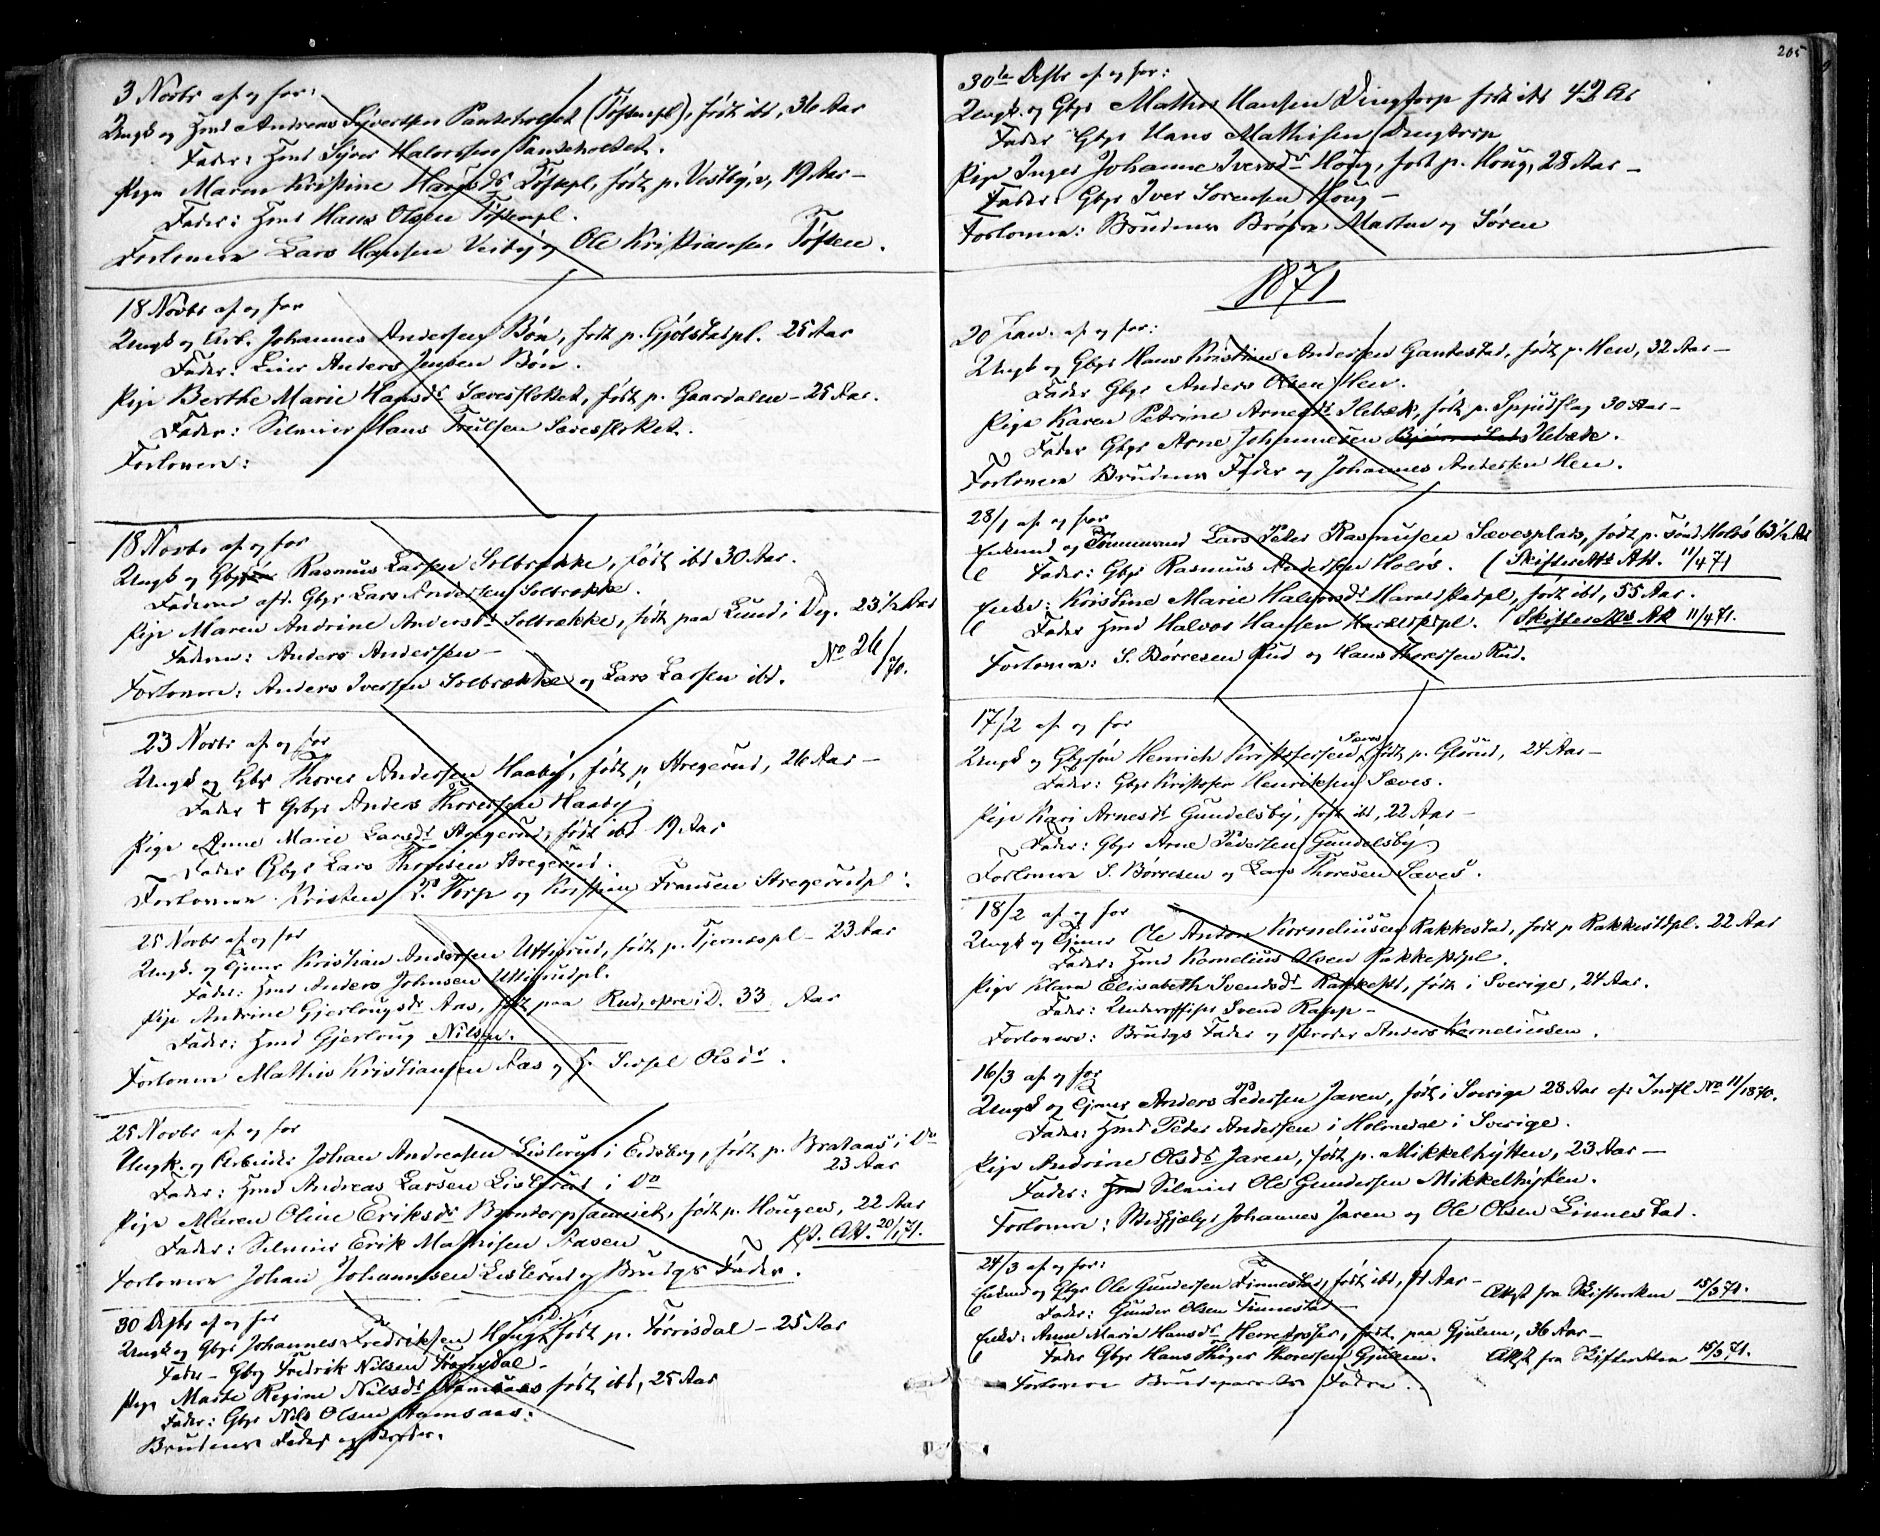 3 Novbr af og for:
Ungk og Hmd Andreas Syversen Panteholtet (Tøstenpl), født ibd, 36 Aar
Fader: Hmd Syver Halvorsen Panteholtet.
Pige Maren Kristine Hansdr Tøstenpl, født p. Vestby, 19 Aar –
Fader: Hmd Hans Olsen Tøstenpl.
Forlovere Lars Hansen Vestby og Ole Kristiansen Tøsten.
18 Novbr af og for
Ungk og Arb. Johannes Andersen Bøn, født p. Gjølstadpl. 25 Aar
Fader: Anders Jensen Bøn.
Pige Berthe Marie Hansdr Sævesfloket, født p. Gaardalen – 25 Aar.
Fader: Selveier Hans Truelsen Sævesfloket.
Forlovere:
18 Novbr af og for
Ungk og Rasmus Larsen Solbrække, født ibd 30 Aar.
Faderen afd. Gbgr Lars Andersen Solbrække.
Pige Maren Andrine Andersdr Solbrække, født paa Lund i Deg. 23½ Aar
Faderen: Anders Andersen –
Forlovere: Anders Iversen Solbrække og Lars Larsen ibd. No 26/70.
23 Novbr af og for
Ungk og Gbr Thorer Andersen Haaby, født p Stregerud, 26 Aar –
Fader † Gbgr Anders Thoresen Haaby
Pige Anne Marie Larsdr Stregerud, født ibd 19 Aar
Fader Gbgr Lars Thoresen Stregerud.
Forlovere Kristen P. Torp og Kristian Fransen Stregerudpl.
25 Novbr af og for
Ungk. og Tjener Kristian Andersen Ultvrud, født p. Tjernæspl – 23 Aar
Fader: Hmd Anders Johnsen
Pige Andrine Gjerlougsdr Aas, født paa Rud, øvre i D. 33 Aar
Fader: Hmd Gjerloug Nilsen.
Forlovere Mathis Kristiansen Aas og Olsdr.
25 Novbr af og for
Ungk. og Arbeider Johan Andreasen Lislerud i Eidsberg, født p. Brataas i Do
23 Aar
Fader: Hmd Andreas Larsen Lislerud i Do
Pige Maren Oline Eriksdr født p. Hougen, 22 Aar
Fader: Selveier Erik Mathisen Aasen Pst. Att. 20/1 71.
Forlovere Johan Johannesen Lislerud og Brudgs Fader.
30 Desbr af og for
Ungk og Gbgr Johannes Fredriksen Houg, født p. Torrisdal – 25 Aar
Fader – Gbgr Fredrik Nilsen
Pige Marte Regine Nilsdr Ramsaas født ibd, 25 Aar
Fader: Gbgr Nils Olsen Ramsaas.
Brudens Fader og Broder.
205
30te Desbr af og for:
Ungk. og Gbgr Mathis Hansen Dingtorp født ibd 42 Aar
Fader Gbgr Hans Mathisen Dingtorp
Pige Inger Johanne Iversdr Houg, født p. Houg, 28 Aar –
Fader: Gbgr Iver Sørensen Houg –
Forlovere: Brudens Brødre Martin og Søren
1871
20 Jan. af og for:
Ungk og Gbgr Hans Kristian Andersen Gautestad, født p. Hen, 32 Aar –
Fader Gbgr Anders Olsen Hen.
Pige Karen Petrine Arnesdr Slebæk, født p. Spydslag 30 Aar –
Fader Gbgr Arne Johannesen Slebæk.
Forlovere Brudens Fader og Johannes Andersen Hen.
28/1 af og for
Enkemd og Tømmermd Lars Peter Rasmusen Sævesplads, født p. Holøs 63½ Aar
Fader: Gbgr Rasmus Andersen Holøs. (Skifte Att. 11/4 71
Enke: Kristine Marie Halvorsdr Haraldstadpl, født ibd, 55 Aar.
Fader Hmd Halvor Hansen Haraldstadpl. Skifte Att 11/4 71.
Forlovere: S. Børresen Rud og Hans Thoresen Rud.
17/2 af og for
Ungk og Gbgrsøn Henrich Kristofersen Sæves, født p. Glørud, 24 Aar –
Fader: Gbgr Kristofer Henriksen Sæves.
Pige Kari Arnesdr Gundelsby, født ibd, 22 Aar –
Fader: Gbgr Arne Pedersen Gundelsby
Forlovere S. Børresen og Lars Thoresen Sæves.
18/2 af og for
Ungk og Tjener Ole Anton Korneliusen Rakkestad, født p Rakkestdpl. 22 Aar
Fader: Hmd Kornelius Olsen Rakkestpl.
Pige Klara Elisabeth Svendsdr Rakkest, født i Sverige, 24 Aar.
Fader: Underoffiser Svend Rapp –
Forlovere: Brudgs Fader og Broder Anders Korneliusen.
16/3 af og for
Ungk og Tjener Anders Pedersen Jaren, født i Sverige 28 Aar ef. Indfl No 11/1870.
Fader: Hmd Peder Andersen i Holmedal i Sverige.
Pige Andrine Olsdr Jaren, født p. Mikkelhytten, 23 Aar –
Fader: Selveier Ole Gundersen Mikkelhytten.
Forlovere: Medhjælper Johannes Jaren og Ole Olsen Linnestad.
24/3 af og for:
Enkemd og Gbgr Ole Gundersen Finnestad, født ibd, 41 Aar – Attest fra Skifteretten 15/3 71.
Fader: Gunder Olsen Finnestad –
Enke: Anne Marie Hansdr født paa Gjulem, 36 Aar –
Fader Gbgr Hans Thøger Thoresen Gjulem. Attest fra Skifteretten 15/3 71.
Forlovere Brudeparrets Fædre.